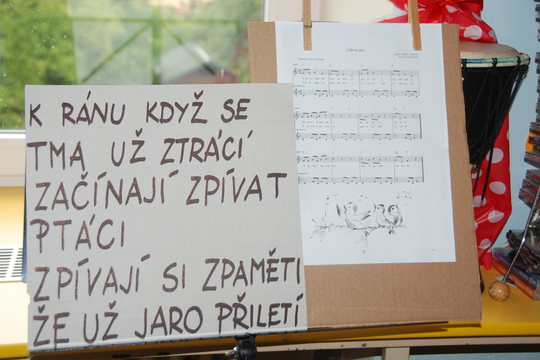 K RÁNU KDYŽ SE
TMA UŽ ZTRÁCÍ
ZAČÍNAJÍ ZPÍVAT
PTÁCI
ZPÍVAJÍ SI ZPAMĚTI
ŽE UŽ JARO PŘILETÍ